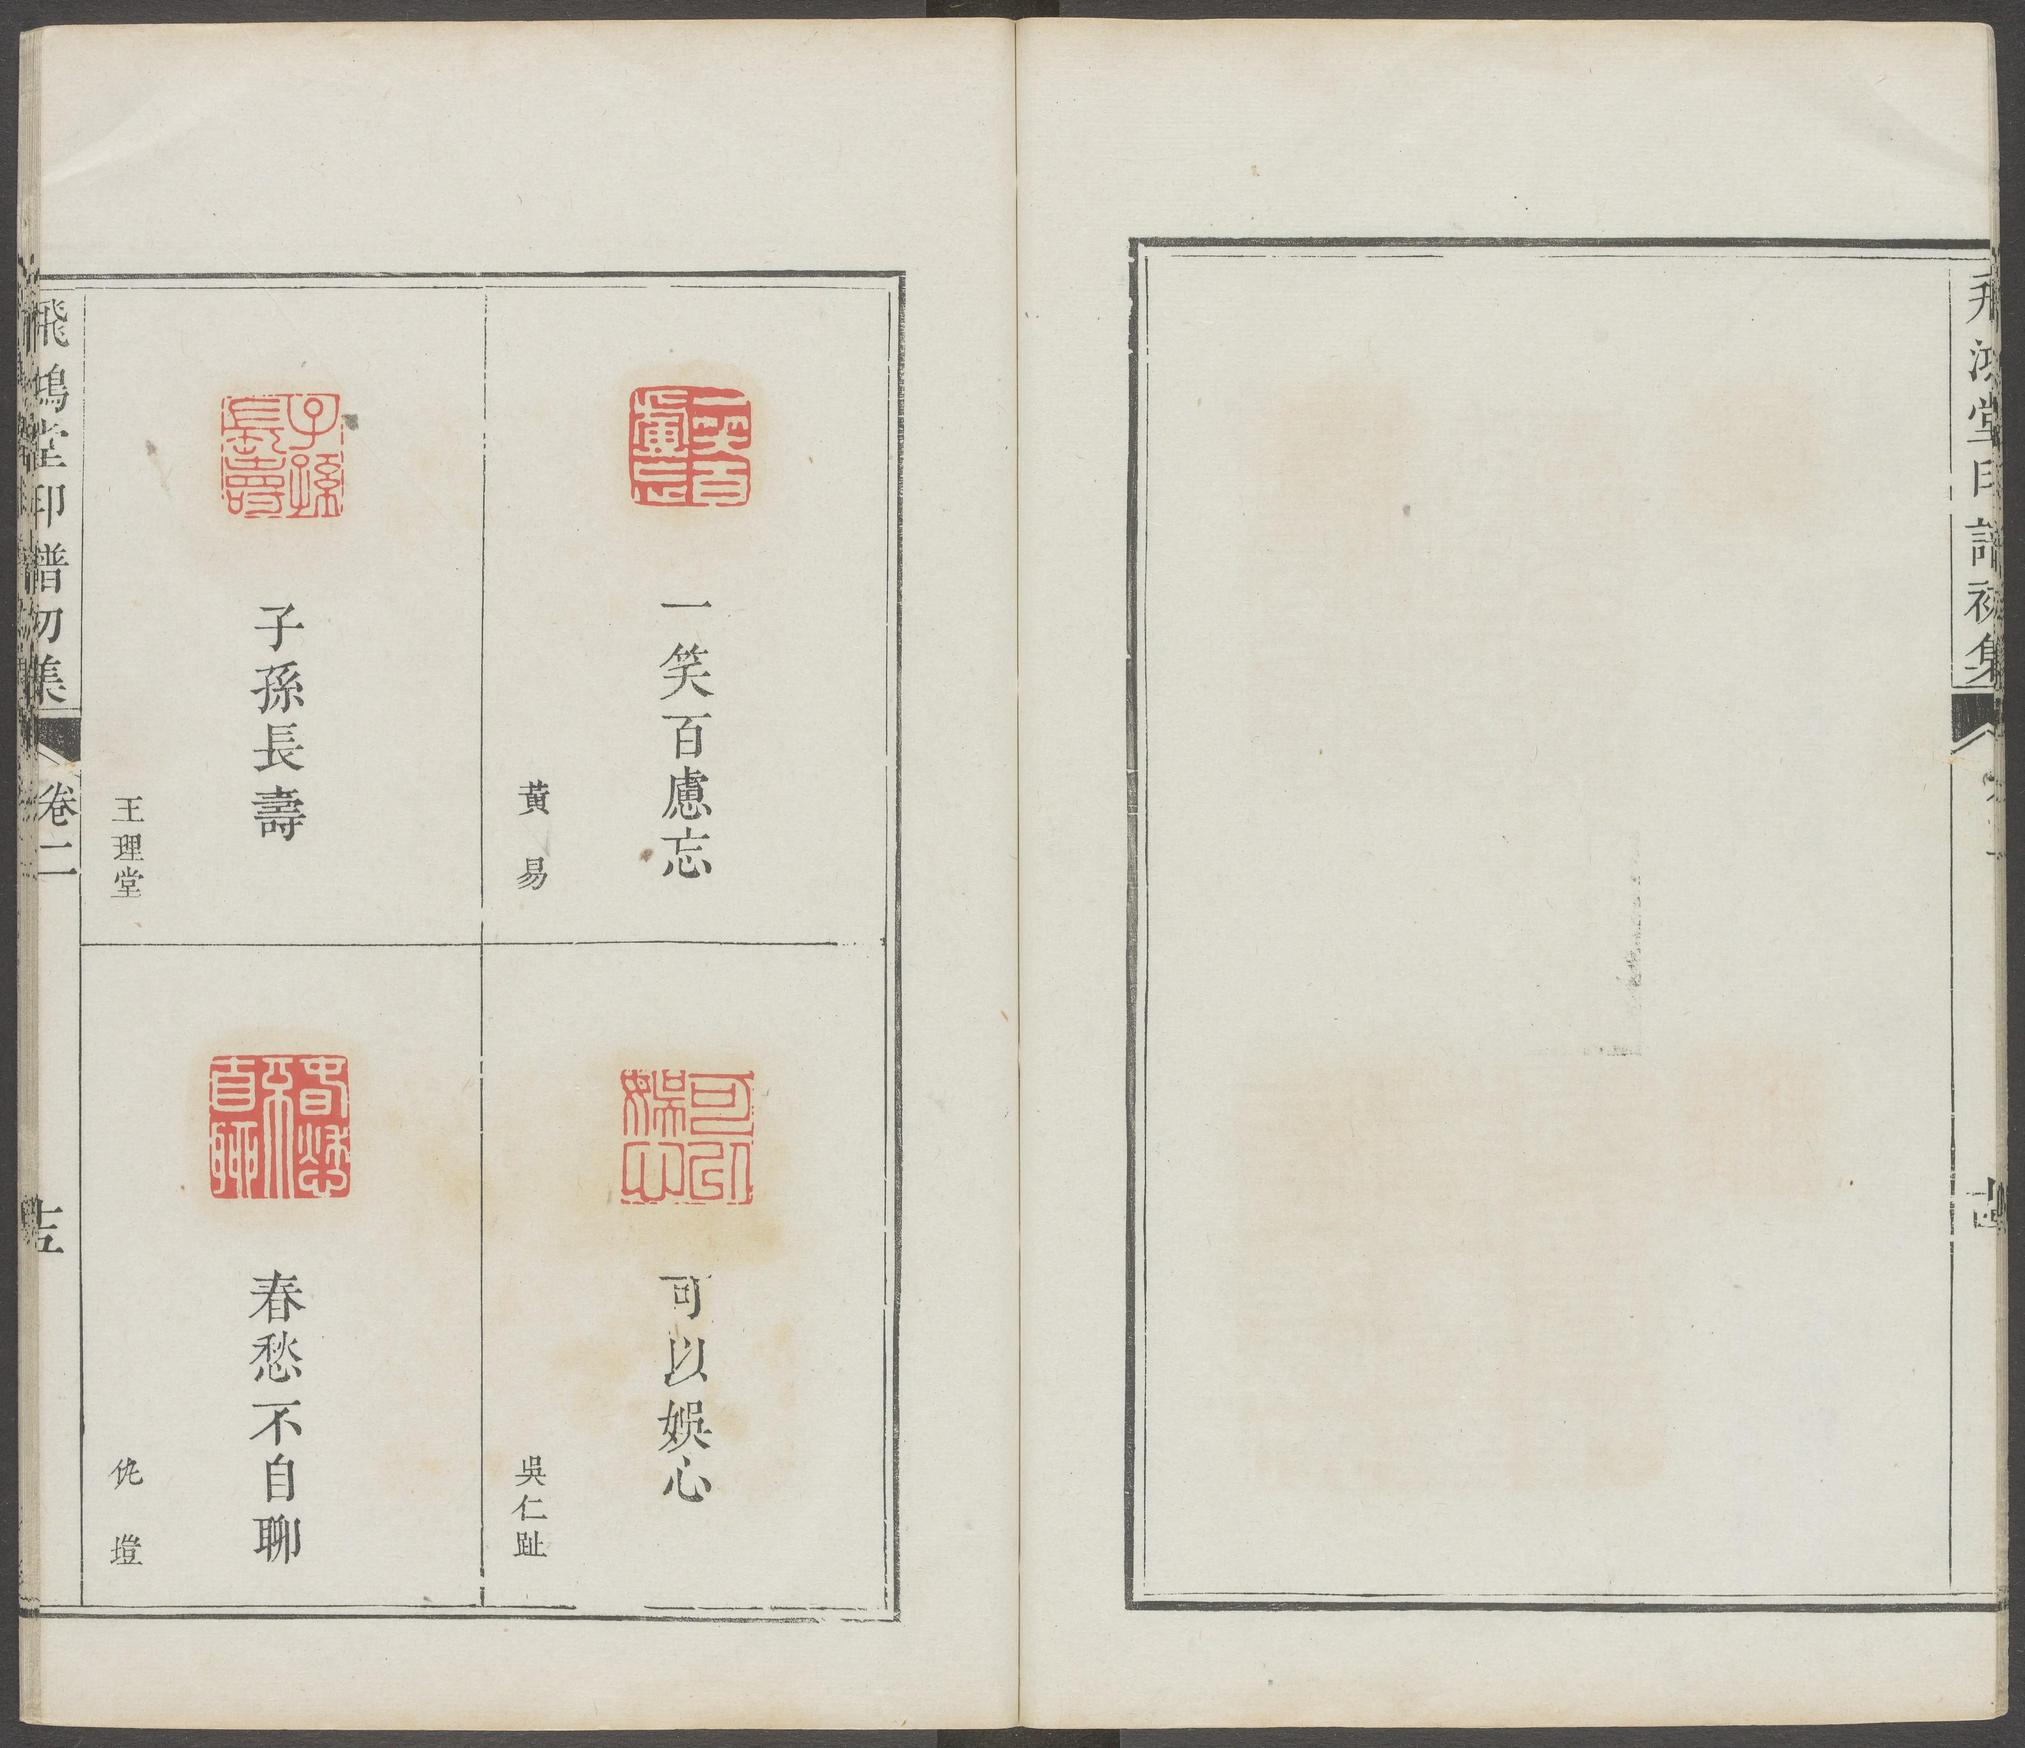 飛鴻堂印譜初集
卷二
一笑百慮忘
黃易
可以娛心
吳仁趾
子孫長壽
王理堂
春愁不自聊
仇塏
飛鴻堂印譜初集
卷二